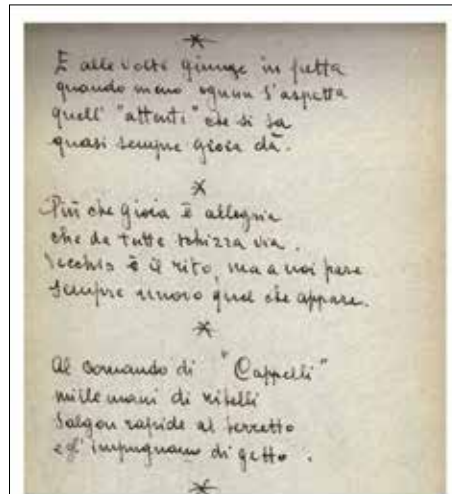 *
E alle volte giunge in fretta
quando meno ognun s'aspetta
quell' "attenti" che si sa
quasi sempre gioia dà.
*
Più che gioia è allegria
che da tutte schizza via.
Vecchio è il rito, ma a noi pare
sempre nuovo quel che appare.
*
Al comando di "Cappelli"
mille mani di ribelli
salgon rapide al berretto
e l'impugnano di getto.
*